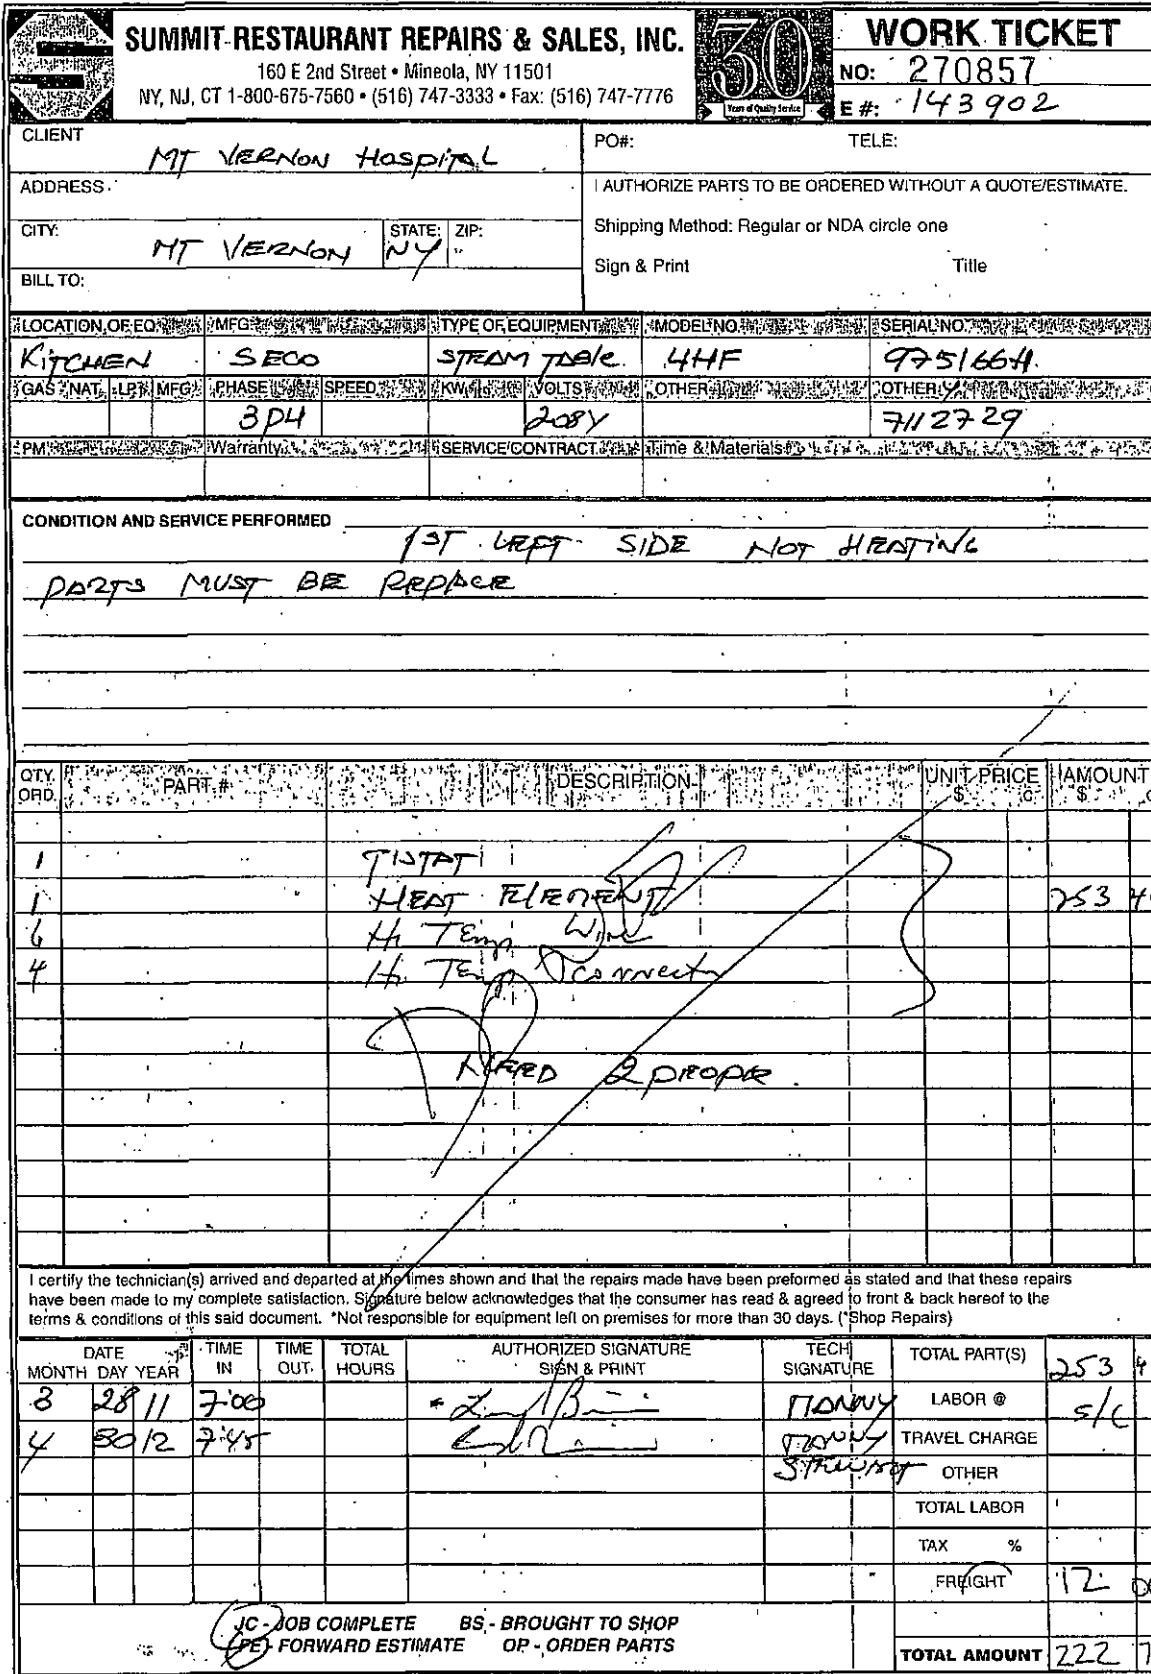 SUMMIT RESTAURANT REPAIRS & SALES, INC.
160 E 2nd Street • Mineola, NY 11501
NY, NJ, CT 1-800-675-7560 • (516) 747-3333 • Fax: (516) 747-7776
30
Years of Quality Service
WORK TICKET
NO: 270857
E #: 143902
CLIENT MT VERNON HOSPITAL
PO#: TELE:
ADDRESS
I AUTHORIZE PARTS TO BE ORDERED WITHOUT A QUOTE/ESTIMATE.
CITY: MT VERNON STATE: NY ZIP:
Shipping Method: Regular or NDA circle one
Sign & Print Title
BILL TO:
LOCATION OF EQ. MFG TYPE OF EQUIPMENT MODEL NO. SERIAL NO.
KITCHEN SECO STEAM TABLE 4HF 975166H
GAS NAT. LP MFG PHASE SPEED KW VOLTS OTHER OTHER
3PH 208V 7112729
PM Warranty SERVICE CONTRACT Time & Materials
CONDITION AND SERVICE PERFORMED
1ST LEFT SIDE NOT HEATING
PARTS MUST BE REPLACE
QTY. ORD. PART # DESCRIPTION UNIT PRICE $ C AMOUNT $
1 T/STAT
1 HEAT ELEMENT 253 4
6 Hi Temp Wire
4 Hi Temp connect
NEED 2 PEOPE
I certify the technician(s) arrived and departed at the times shown and that the repairs made have been preformed as stated and that these repairs
have been made to my complete satisfaction. Signature below acknowledges that the consumer has read & agreed to front & back hereof to the
terms & conditions of this said document. *Not responsible for equipment left on premises for more than 30 days. (*Shop Repairs)
DATE MONTH DAY YEAR TIME IN TIME OUT TOTAL HOURS AUTHORIZED SIGNATURE SIGN & PRINT TECH SIGNATURE TOTAL PART(S) 253 4
8 28 11 7:00 MANNY LABOR @ S/C
4 30 12 7:45 MANNY TRAVEL CHARGE
STEWART OTHER
TOTAL LABOR
TAX %
FREIGHT 12
JC - JOB COMPLETE BS - BROUGHT TO SHOP
FE - FORWARD ESTIMATE OP - ORDER PARTS
TOTAL AMOUNT 222 7